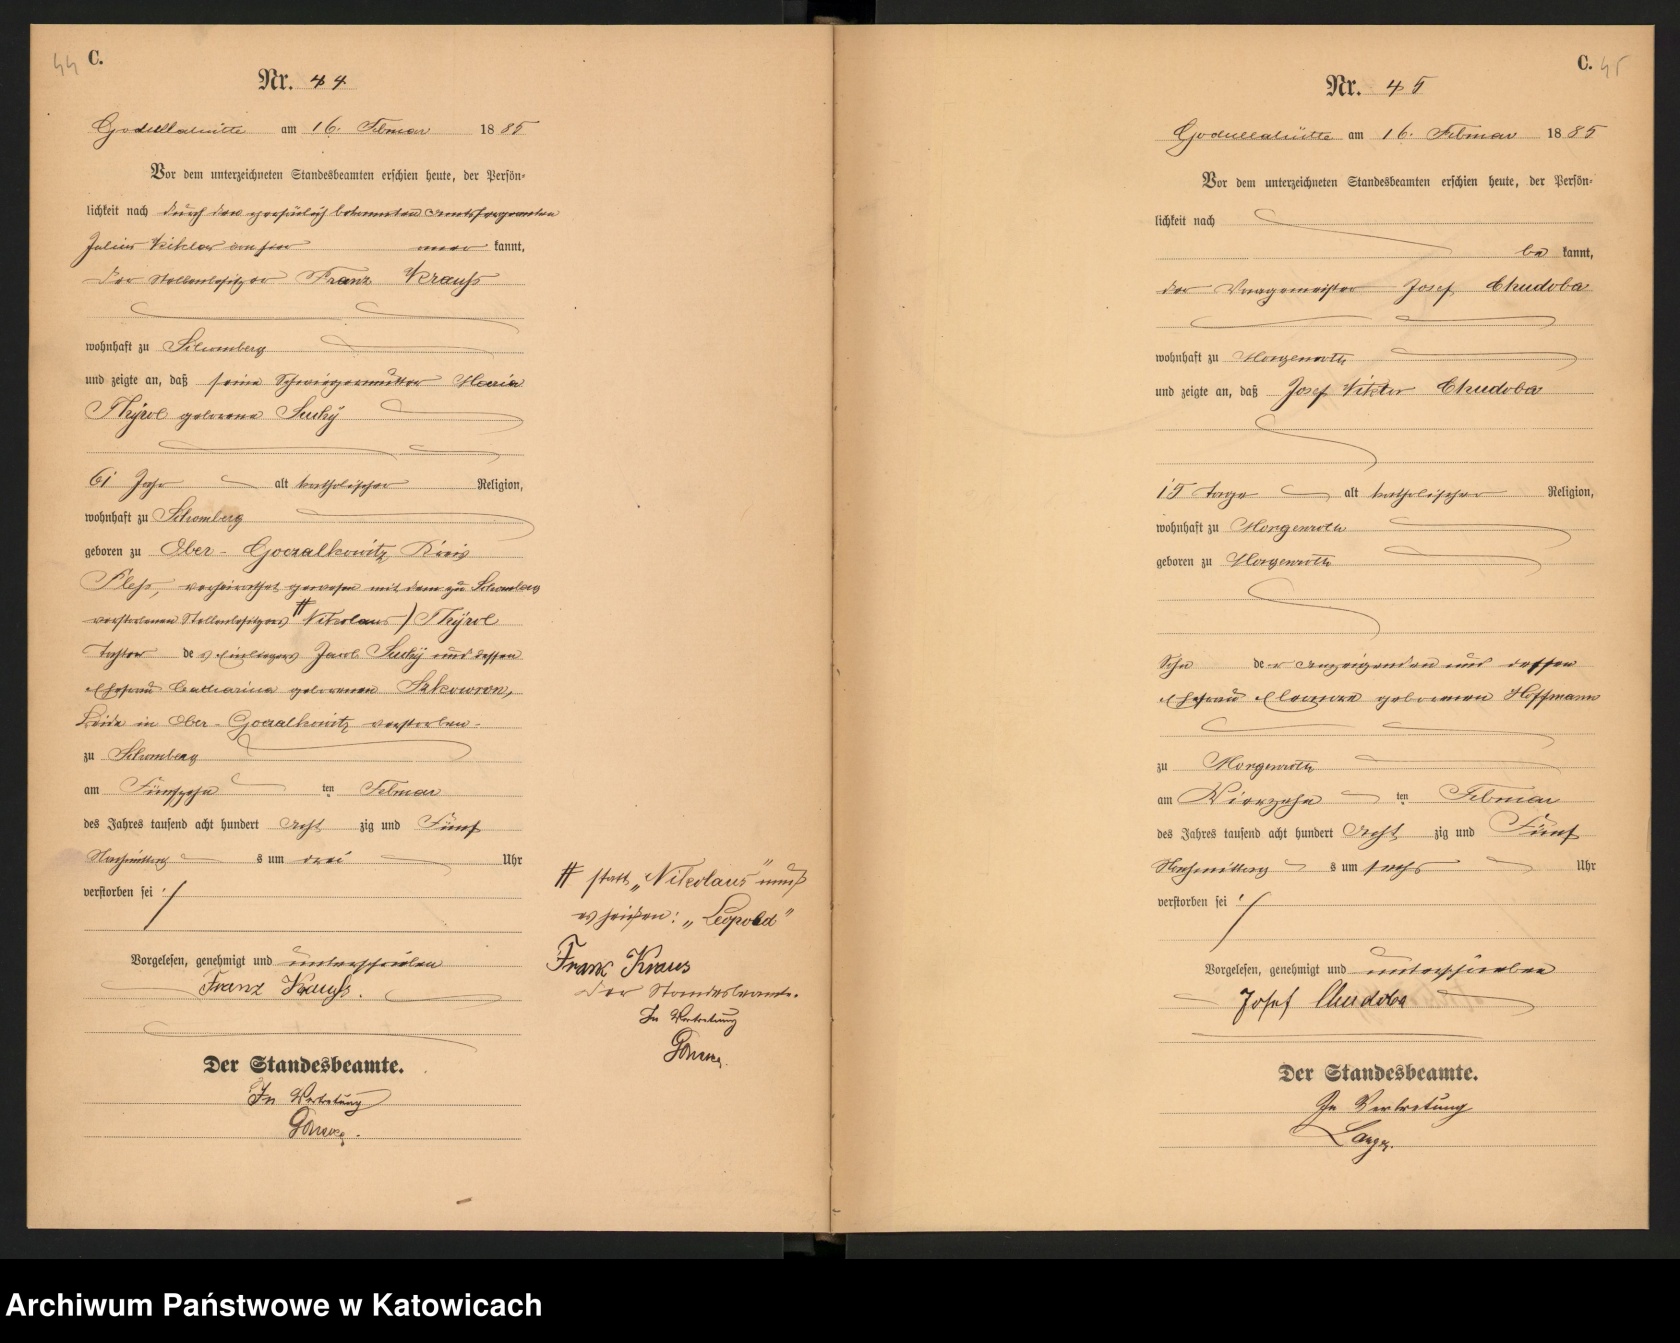 44
C.
Nr. 44
Godullahütte am 16. Februar 1885
Vor dem unterzeichneten Standesbeamten erschien heute, der Persön-
lichkeit nach durch den persönlich bekannten Amtssergeanten
Julius aner kannt,
der Stellenbesitzer Franz Krauss
wohnhaft zu Schomberg
und zeigte an, daß seine Schwiegermutter Maria
Thÿrol geborene Suchÿ
61 Jahr alt katholischer Religion,
wohnhaft zu Schomberg
geboren zu Ober-Goczalkowitz, Kreis
Pless, verheirathet gewesen mit dem zu Schomberg
verstorbenen Stellenbesitzer # Nikolaus) Thÿrol
Tochter des Einliegers Jacob Suchÿ und dessen
Ehefrau Catharina geborenen Szkowron,
Beide in Ober-Goczalkowitz verstorben
zu Schomberg
am Fünfzehn ten Februar
des Jahres tausend acht hundert Acht zig und Fünf
Nachmittag s um drei Uhr
verstorben sei :/
Vorgelesen, genehmigt und unterschrieben
Franz Krauss.
Der Standesbeamte.
In Vertretung
# statt „Nikolaus" muß
es heißen: „Leopold"
Franz Kraus
Der Standesbeamte.
In Vertretung
C. 45
Nr. 45
Godullahütte am 16. Februar 1885
Vor dem unterzeichneten Standesbeamten erschien heute, der Persön-
lichkeit nach
be kannt,
der Waagemeister Josef Chudoba
wohnhaft zu Morgenroth
und zeigte an, daß Josef Viktor Chudoba
15 Tage alt katholischer Religion,
wohnhaft zu Morgenroth
geboren zu Morgenroth
Sohn der Anzeigenden und dessen
Ehefrau geborenen Hoffmann
zu Morgenroth
am Vierzehn ten Februar
des Jahres tausend acht hundert Acht zig und Fünf
Nachmittag s um sechs Uhr
verstorben sei :/
Vorgelesen, genehmigt und unterschrieben
Josef Chudoba
Der Standesbeamte.
In Vertretung
Archiwum Państwowe w Katowicach